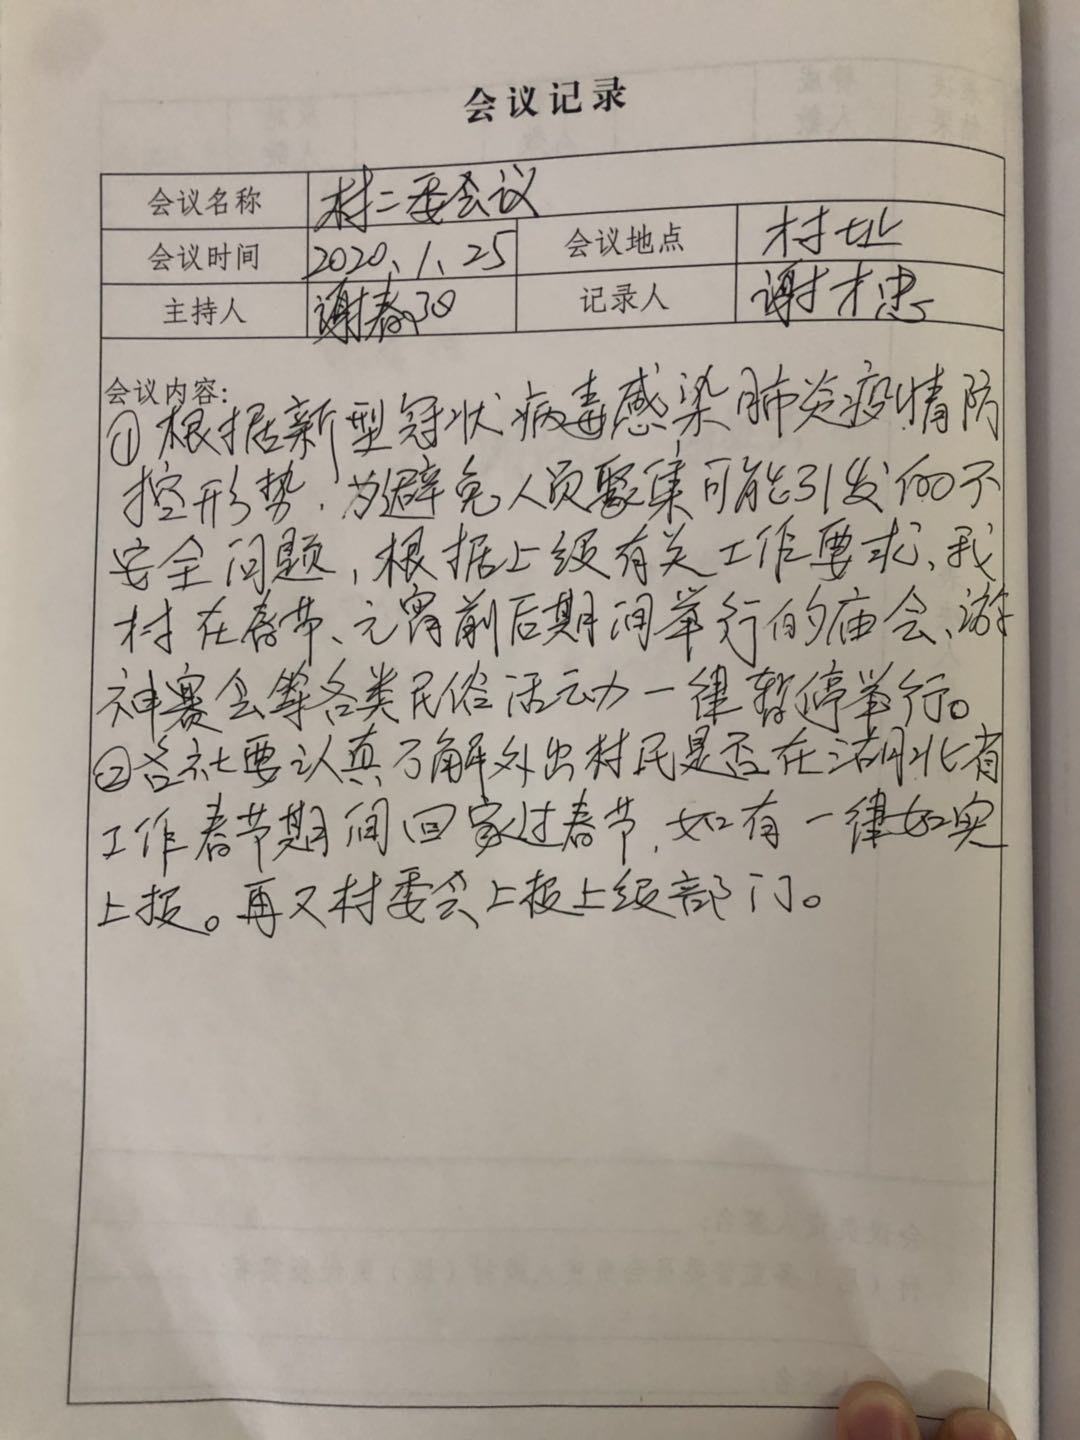 会议记录
会议名称 村二委会议
会议时间 2020、1、25 会议地点 村址
主持人 谢春 记录人 谢才忠
会议内容:
①根据新型冠状病毒感染肺炎疫情防
控形势,为避免人员聚集可能引发的不
安全问题,根据上级有关工作要求、我
村在春节、元宵前后期间举行的庙会、游
神赛会等各类民俗活动一律暂停举行。
②各社要认真了解外出村民是否在湖北省
工作春节期间回家过春节,如有一律如实
上报。再又村委会上报上级部门。